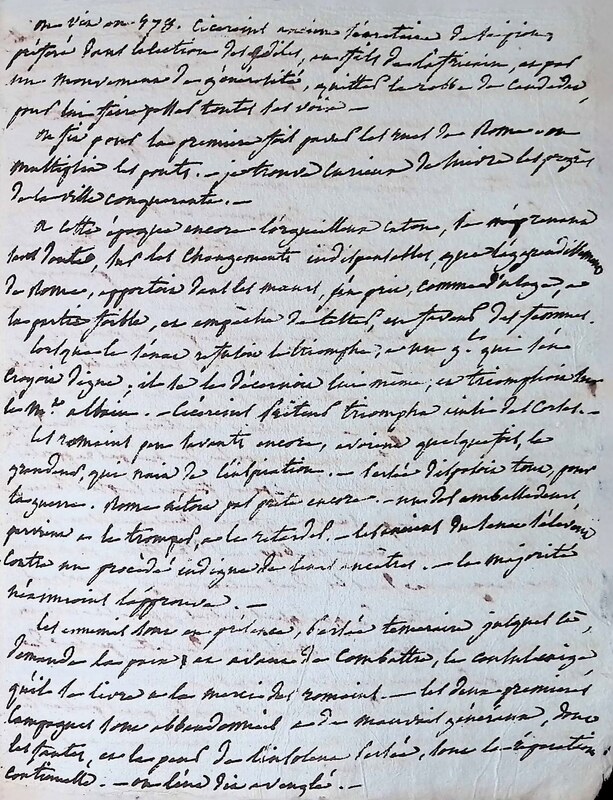 on vin en 578. Cicereius ancien secretaire de Scipion,
preferé dans l'élection des Ediles, au fils de l'africain, et par
un mouvement de générosité, quitta la robbe de Candidat,
pour lui faire passer toutes les voix —
on fit pour la premiere fois paver les rues de Rome. on
multiplia les ponts. — je trouve curieux de suivre les progrès
de la ville conquerante. —
a cette époque encore l'orgueilleux caton, se méprenant
sans doute, sur les changements indispensables, que l'agrandissement
de Rome, apportoit dans les mœurs, fin prie, comme d'usage, a
la partie foible, et empêcha de testes, en faveur des femmes.
lorsque le senat refusoit le triomphe, a un g.al qui s'en
croyoit digne; il se le décernoit lui même, et triomphoit sur
le m.t albain. — Cicereius preteur triompha ainsi des Corses. —
les romains peu savants encore, avoient quelquefois, la
grandeur, que nait de l'inspiration. — Persée disposoit tout, pour
la guerre. Rome n'étoit pas prête encore — un des ambassadeurs
parvint a le tromper, a le retarder. — les anciens du senat s'élevent
contre un procédé indigne de leurs ancêtres. — la majorité
néanmoins l'approuva. —
les ennemis sont en présence, Persée temeraire jusques là,
demande la paix et avant de combattre, le consul exige
qu'il se livre a la merci des romains. — les deux premieres
campagnes sont abbandonnées a de mauvais généraux, dont
les fautes, et les peurs de l'insolent Persée, sont la réparation
continuelle. — on l'eus dit aveuglé. —